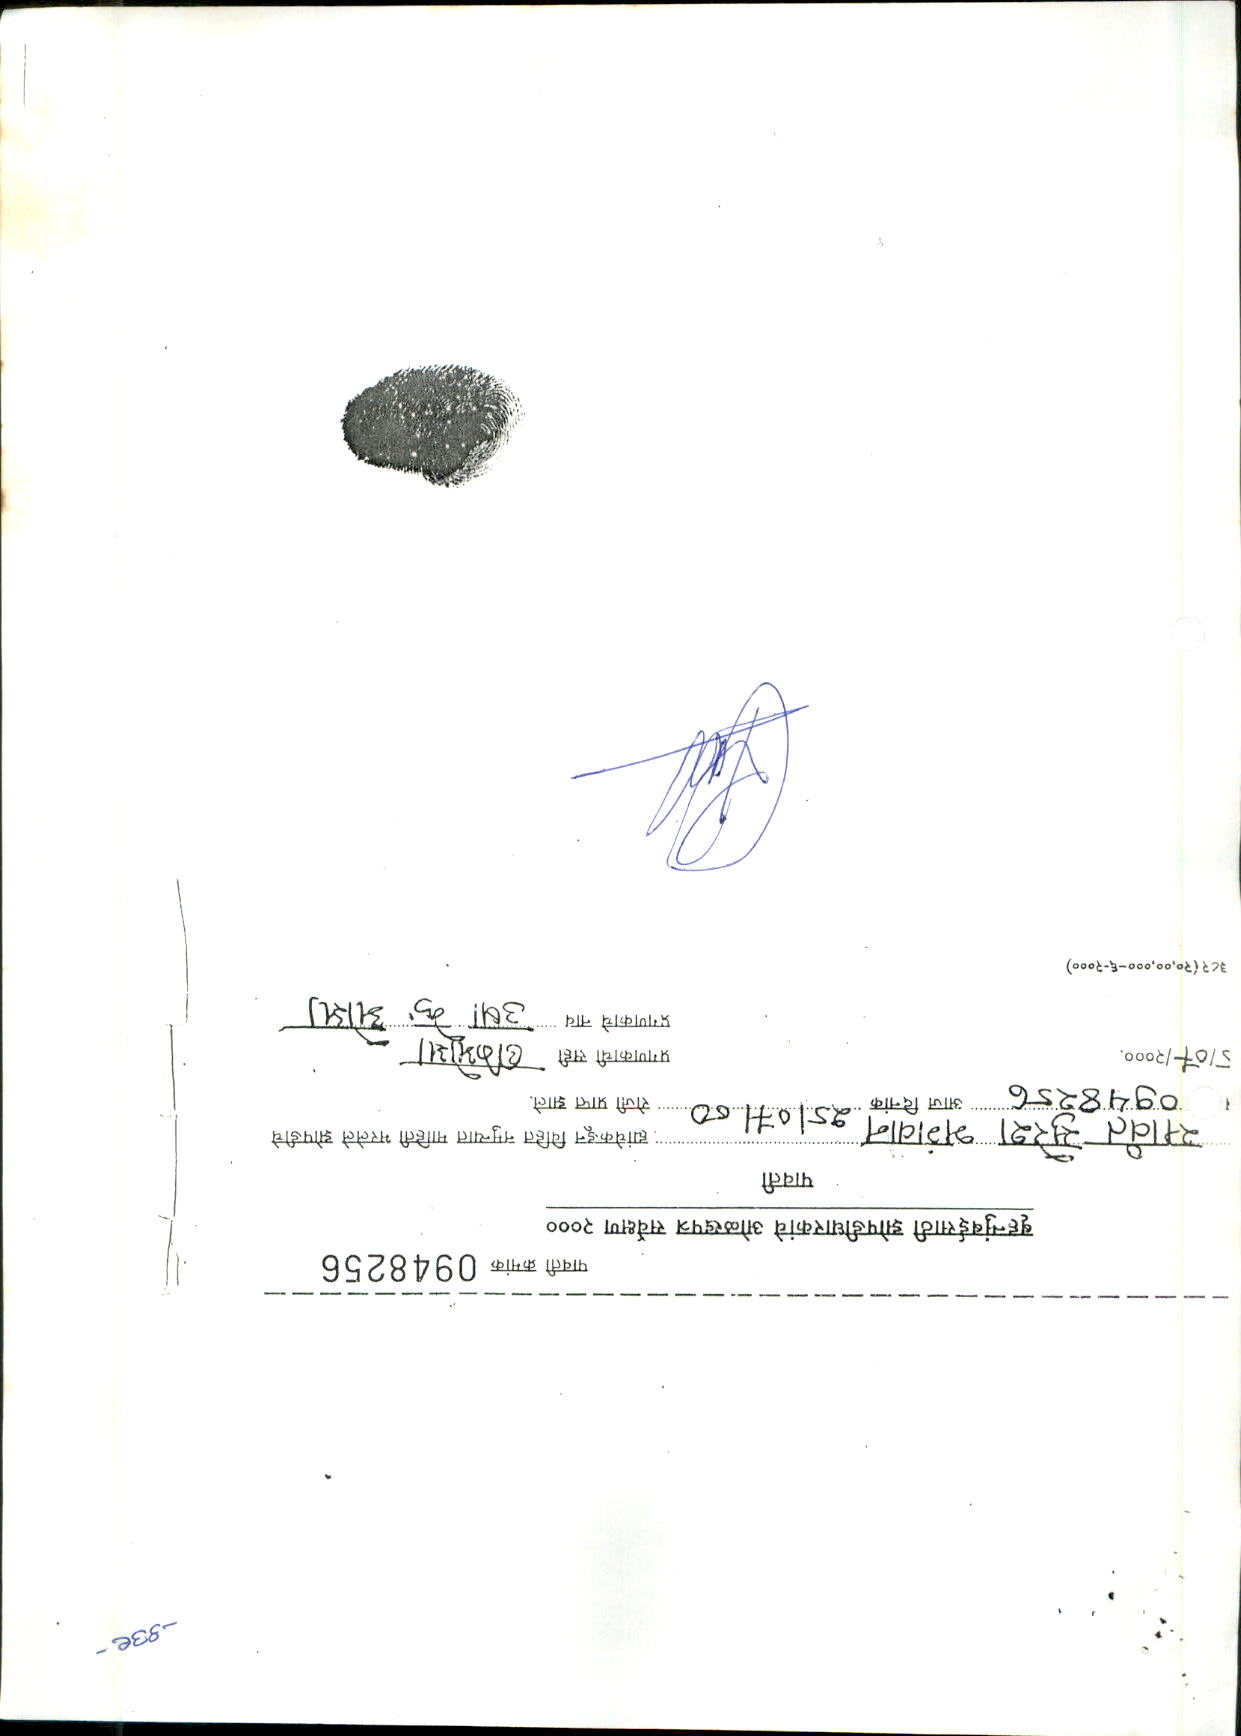 पावती क्रमांक 0948256
बृहन्मुंबईसाठी झोपडीधारकांचे ओळखपत्र सर्वेक्षण २०००
पावती
सावंत सुरेश भगंवान ह्यांचेकडून विहित नमुन्यात माहिती भरलेले झोपडीचे
0948256 आज दिनांक 25/07/00 रोजी प्राप्त झाले.
5/07/२०००. प्रगणकाची सही
प्रगणकाचे नाव उषा के ओझा
३८२(२०,००,०००-६-२०००)